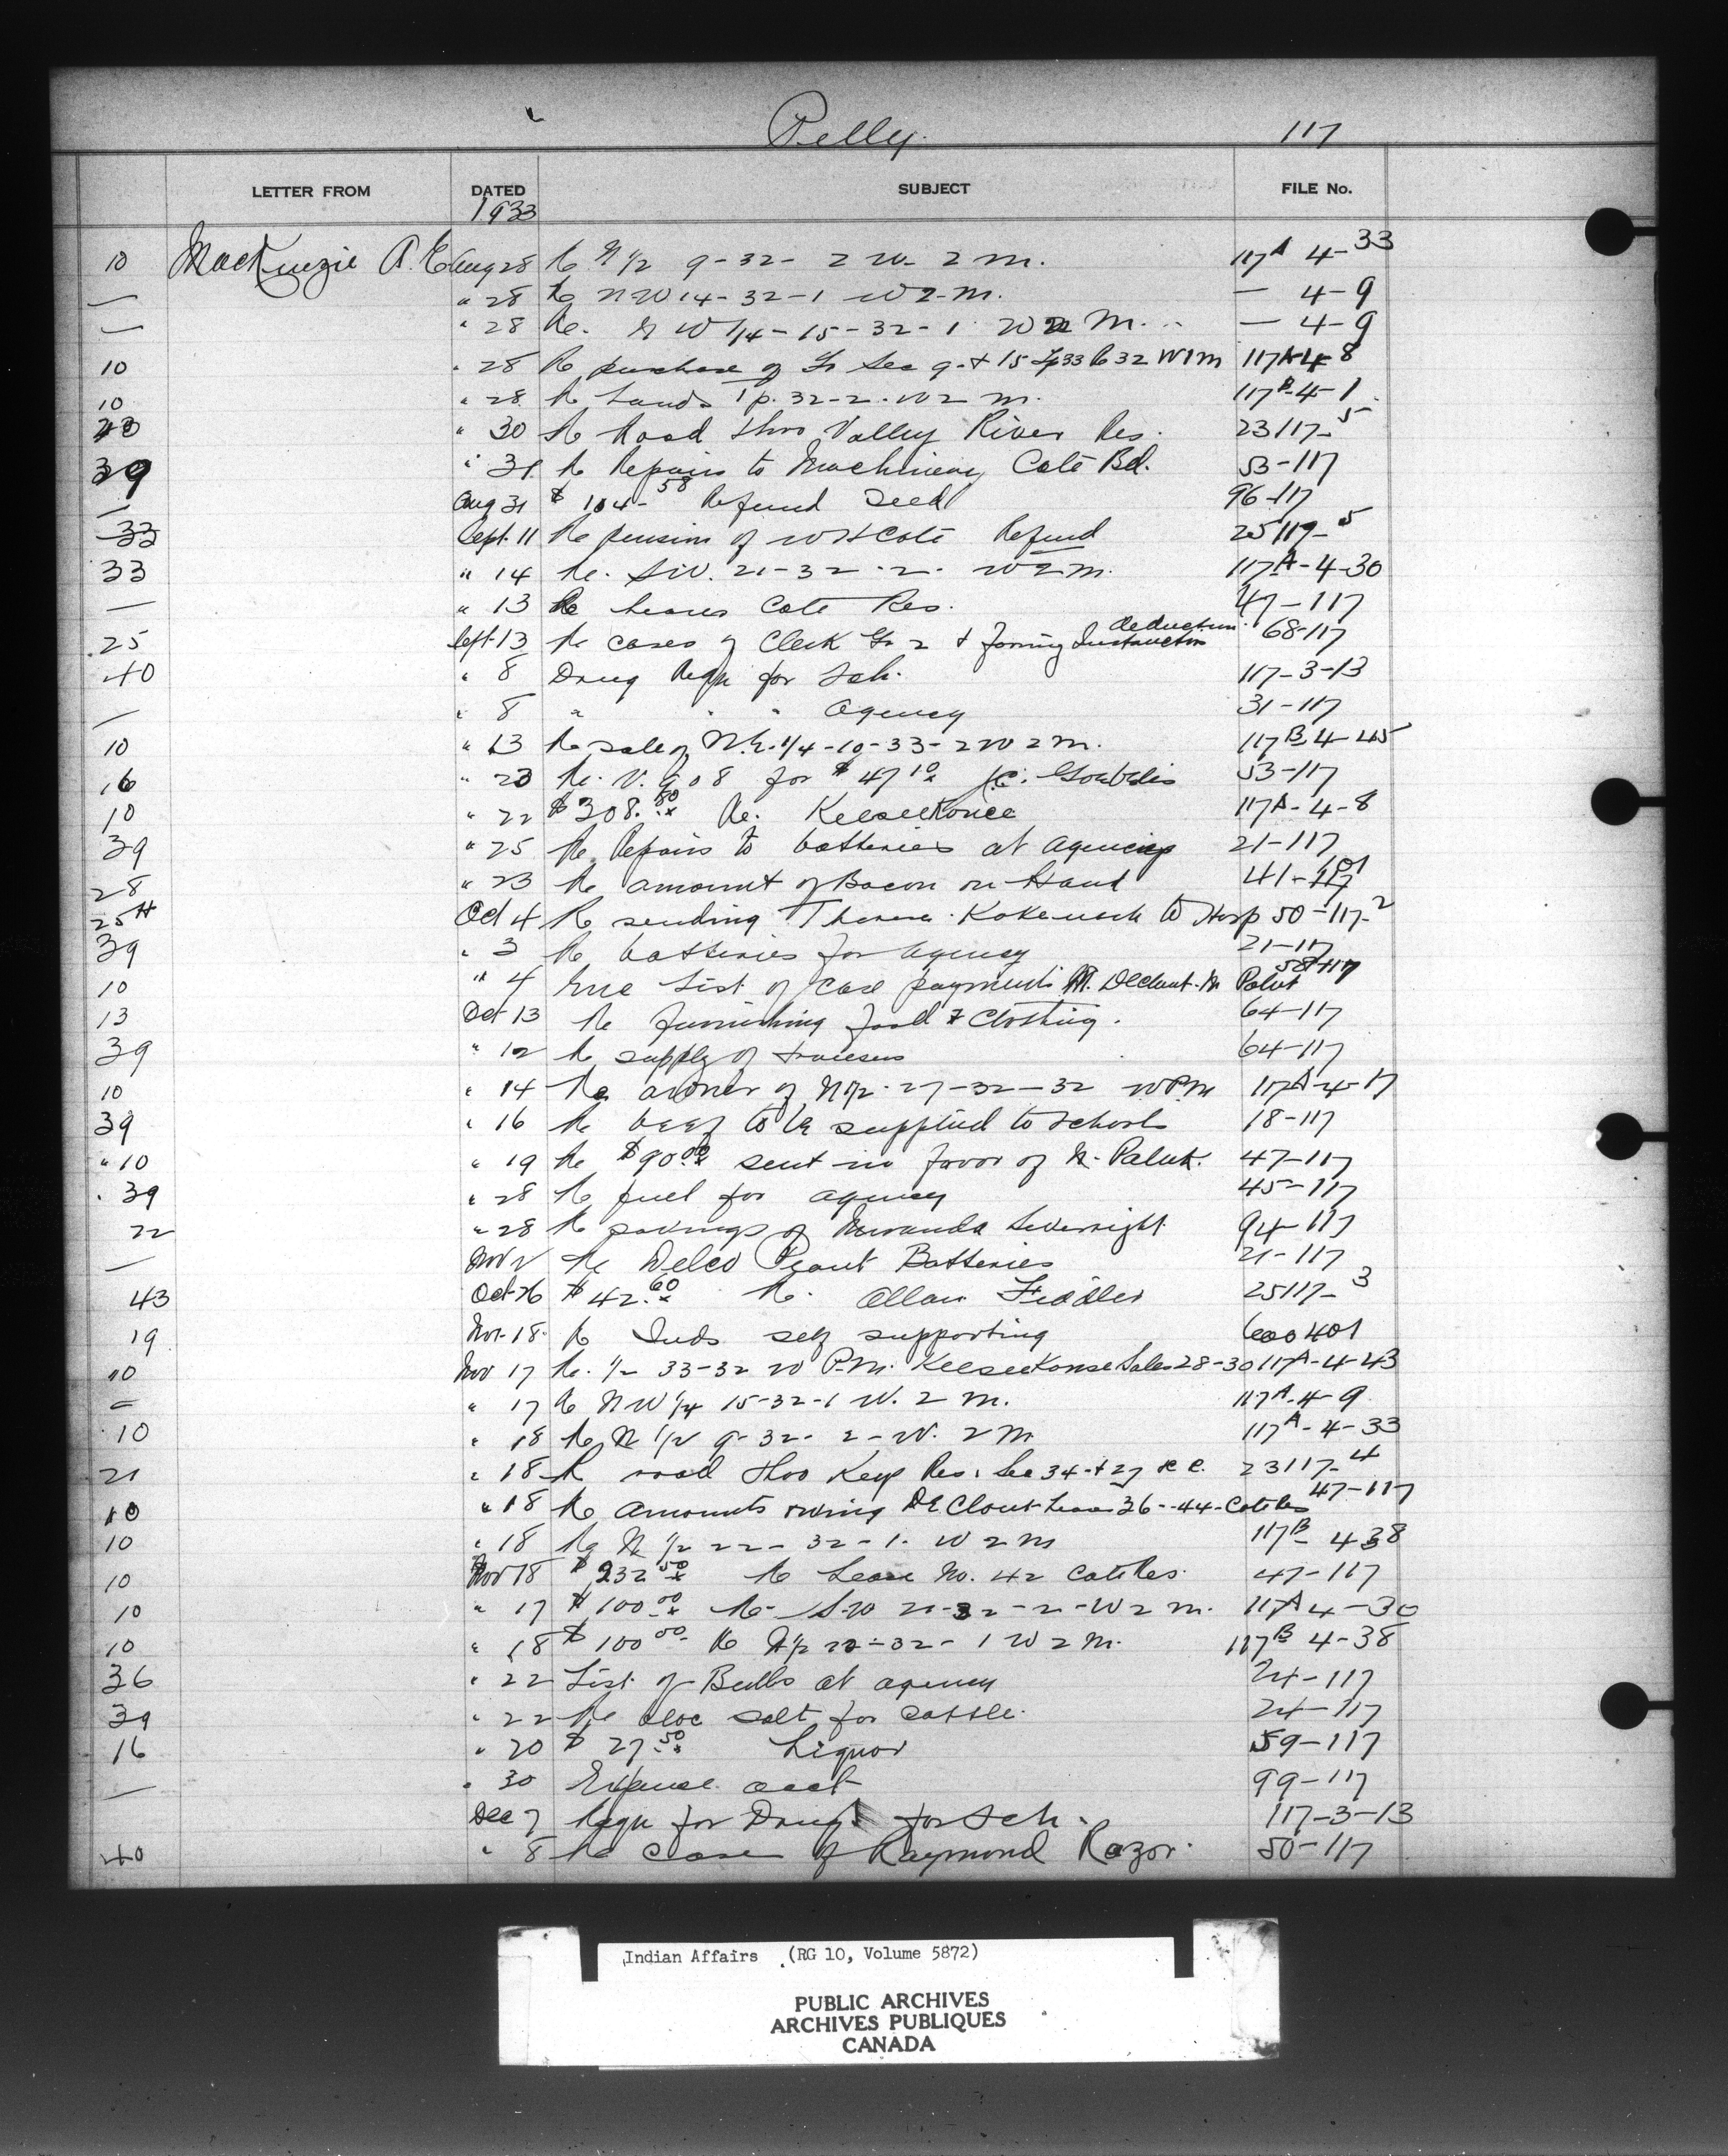 Pelly. 117
LETTER FROM DATED SUBJECT FILE No.
1933
10 MacKenzie A. E. Aug 28 Re N 1/2 9-32-2 W- 2 M. 117A 4-33
— " 28 Re NW 14-32-1 W 2-M. — 4-9
— " 28 Re. N W 1/4-15-32-1 W 2 M. — 4-9
10 " 28 Re purchase of Fr Sec 9 + 15 Tp 33 R 32 W1M 117A-4-8
10 " 28 Re Lands Tp. 32-2-W 2 M. 117B-4-1
" 30 Re Road thro Valley River Res. 23117-5
39 " 31 Re Repairs to Machinery Cote Bd. 53-117
— Aug 31 $ 104-58 Refund Seed 96-117
33 Sept. 11 Re pension of W H Cote Refund 25119-5
33 " 14 Re. S.W. 21-32-2- W 2 M. 117A-4-30
— " 13 Re Leases Cote Res. 47-117
deduction
25 Sept 13 Re cases of Clerk Gr 2 + Farming Instructor 68-117
40 " 8 Drug Reqn for Sch. 117-3-13
— " 8 " " " Agency 31-117
10 " 13 Re sale of N.E. 1/4-10-33-2 W 2 M. 117B-4-45
16 " 20 Re. V. 908 for $ 47 10 J.C. 53-117
10 " 22 $308.80 Re. Keeseekonee 117A-4-8
39 " 25 Re Repairs to batteries at Agency 21-117
28 " 23 Re amount of Bacon on Hand 41-117
25H Oct 4 Re sending to Hosp 50-117-2
39 " 3 Re batteries for Agency 21-117
58-117
10 " 4 Enc List of case payments De Clout. N Paluk
13 Oct 13 Re furnishing food & Clothing. 64-117
39 " 12 Re supply of trousers 64-117
10 " 14 Re owner of N 1/2-27-32-32 W P.M 117A-4-17
39 " 16 Re beef to be supplied to schools 18-117
" 10 " 19 Re $90.00 sent in favor of N. Paluk. 47-117
39 " 28 Re fuel for Agency 45-117
22 " 28 Re savings of Miranda Severight 94-117
— Nov 2 Re Delco Plant Batteries 21-117
43 Oct 26 $ 42.60 Re. Allan Fiddler 25117-3
19 Nov. 18 Re Inds self supporting 600401
10 Nov 17 Re. 1/2 33-32 W P.M. Keeseekonse Sales 28-30 117A-4-43
— " 17 Re NW 1/4 15-32-1 W. 2 M. 117A-4-9
10 " 18 Re N 1/2 9-32-2-W. 2 M 117A-4-33
21 " 18 Re road thro Keys Res. Sec 34 + 27 23117-4
10 " 18 Re amounts owing DeClout Leases 36-44-Cote Res 47-117
10 " 18 Re N 1/2 22-32-1. W 2 M 117B-438
10 Nov 18 $ 232 50 Re Lease No. 42 Cote Res. 47-117
10 " 17 $ 100.00 Re- S.W 21-32-2-W 2 M. 117A 4-30
10 " 18 $ 100 00 Re N 1/2 22-32-1 W 2 M. 117B 4-38
36 " 22 List of Bulls at Agency 24-117
39 " 22 Re bloc salt for Cattle. 24-117
16 " 20 $ 27.50 Liquor 59-117
— " 30 Expense acct 99-117
Dec 7 Reqn for Drugs for Sch. 117-3-13
40 " 8 Re case of Raymond Razor. 50-117
Indian Affairs (RG 10, Volume 5872)
PUBLIC ARCHIVES
ARCHIVES PUBLIQUES
CANADA